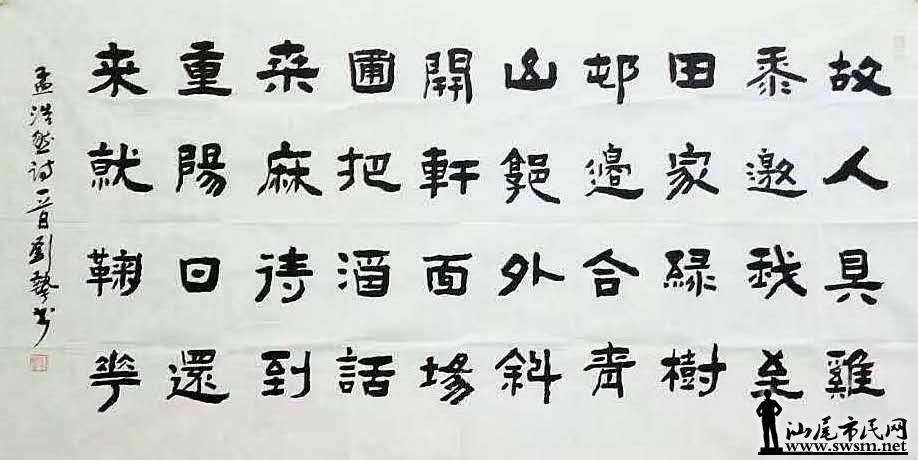 故人具雞
黍邀我至
田家緑樹
邨邊合青
山郭外斜
開軒面場
圃把酒話
桒麻待到
重陽日還
来就鞠華
孟浩然诗 劉藝书
汕尾市民网
www.swsm.net